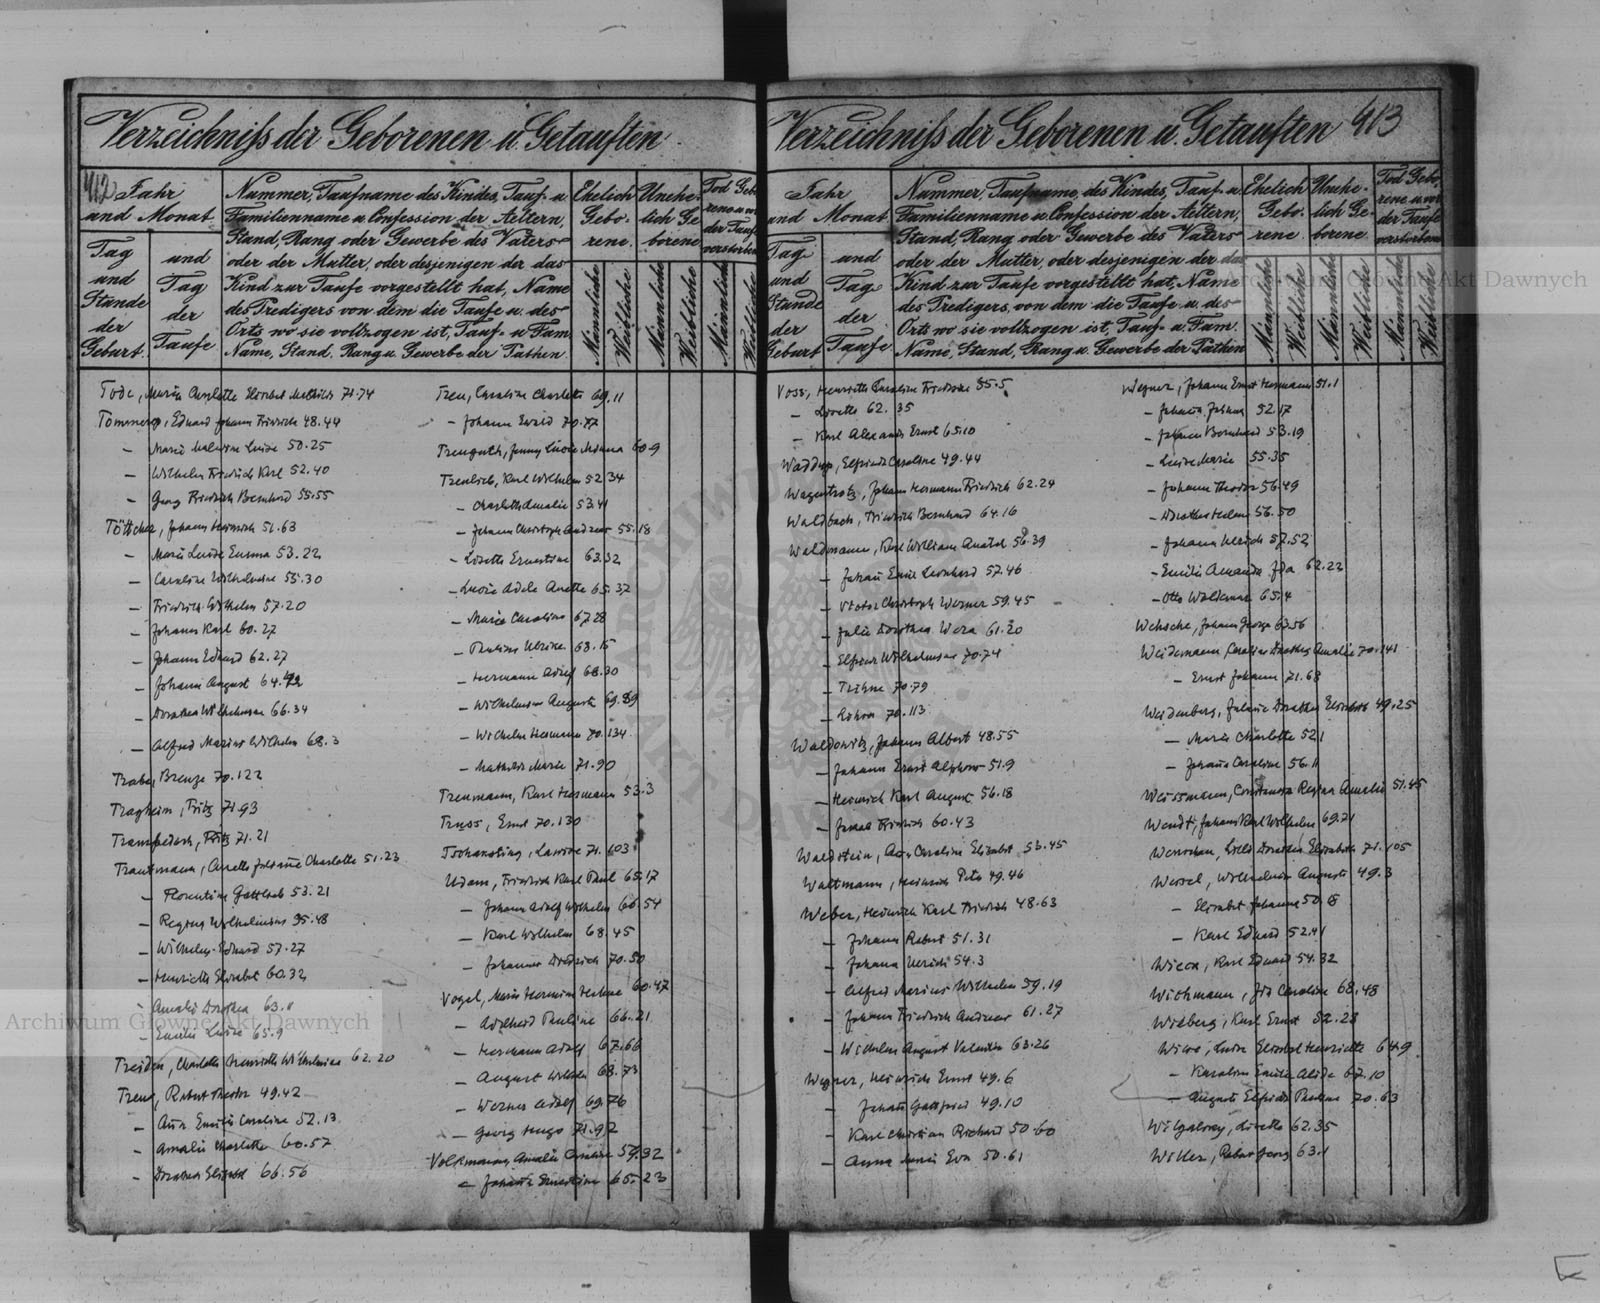 Verzeichniß der Geborenen u. Getauften
412
Jahr
und Monat
Tag
und
Stunde
der
Geburt
und
Tag
der
Taufe
Nummer, Taufname des Kindes, Tauf- u.
Familienname u. Confession der Aeltern,
Stand, Rang oder Gewerbe des Vaters
oder der Mutter, oder desjenigen der das
Kind zur Taufe vorgestellt hat, Name
des Predigers von dem die Taufe u. des
Orts wo sie vollzogen ist, Tauf- u. Fam.
Name, Stand, Rang u. Gewerbe der Pathen.
Ehelich
Gebo-
rene.
Unehe-
lich Ge
borene
Tod Gebo
rene u. vor
der Taufe
verstorben
Männliche
Weibliche
Männliche
Weibliche
Männliche
Weibliche
Tode, Maria Charlotte Elisabet Mathilde 71.74
Tommerop, Eduard Johann Friedrich 48.44
– Marie Malwine Luise 50.25
– Wilhelm Friedrich Karl 52.40
– Georg Friedrich Bernhard 55.55
Töttcher, Johann Heinrich 51.63
– Marie Luise Emma 53.22
– Caroline Wilhelmine 55.30
– Friedrich Wilhelm 57.20
– Johannes Karl 60.27
– Johann Eduard 62.27
– Johann August 64.72
– Dorothea Wilhelmine 66.34
– Alfred Marius Wilhelm 68.3
Trabe, 70.122
Tragheim, Fritz 71.93
Fritz 71.21
Trautmann, Charlotte 51.23
– Florentine Gottlieb 53.21
– Regine Wilhelmine 55.48
– Wilhelm Eduard 57.27
– Henriette Elisabet 60.32
– Amalie Dorothea 63.11
– Emilie Luise 65.9
Treiden, Charlotte Henriette Wilhelmine 62.20
Treu, Robert Theodor 49.42
– Anna Emilie Caroline 52.13
– Amalie Charlotte 60.57
– Dorothea Elisabet 66.56
Treu, Caroline Charlotte 69.11
– Johann Ewald 70.77
Treuguth, Jenny Lucie Minna 60.9
Treulich, Karl Wilhelm 52.34
– Charlotte Amalie 53.41
– Johann Christoph Andreas 55.18
– Lisette Ernestine 63.32
– Lucie Adele Anette 65.37
– Marie Caroline 67.28
– Pauline Ulrike 68.15
– Hermann Adolf 68.30
– Wilhelmine Auguste 69.89
– Wilhelm Hermann 70.134
– Mathilde Marie 71.90
Treumann, Karl Hermann 53.3
Truss, Ernst 70.130
71.103
Udam, Friedrich Karl Paul 65.17
– Johann Adolf Wilhelm 66.54
– Karl Wilhelm 68.45
– Johannes Diedrich 70.50
Vogel, Marie Hermine Helene 60.47
– Adelheid Pauline 66.21
– Hermann Adolf 67.66
– August Wilhelm 68.73
– Werner Adolf 69.76
– Georg Hugo 71.92
Volkmann, Amalie Caroline 59.32
– Johanna Ernestine 65.23
Verzeichniß der Geborenen u. Getauften 413
Jahr
und Monat
Tag
und
Stunde
der
Geburt
und
Tag
der
Taufe
Nummer, Taufname des Kindes, Tauf- u.
Familienname u. Confession der Aeltern,
Stand, Rang oder Gewerbe des Vaters
oder der Mutter, oder desjenigen der das
Kind zur Taufe vorgestellt hat, Name
des Predigers von dem die Taufe u. des
Orts wo sie vollzogen ist, Tauf- u. Fam.
Name, Stand, Rang u. Gewerbe der Pathen
Ehelich
Gebo-
rene.
Unehe-
lich Ge
borene
Tod Gebo
rene u. vor
der Taufe
verstorbene
Männliche
Weibliche
Männliche
Weibliche
Männliche
Weibliche
Voss, Henriette Caroline Friederike 55.5
– Lisette 62.35
– Karl Alexander Ernst 65.10
Elfriede Caroline 49.44
Johann Hermann Friedrich 62.24
Waldbach, Friedrich Bernhard 64.16
Waldmann, Karl William Anatol 58.39
– Johann Emil Leonhard 57.46
– Victor Christoph Werner 59.45
– Julie Dorothea Wera 61.20
– Elfriede Wilhelmine 70.74
– 70.79
– 70.113
Waldowitz, Johann Albert 48.55
– Johann Ernst Alphons 51.9
– Heinrich Karl August 56.18
– Friedrich 60.43
Waldstein, Ann Caroline Elisabet 53.45
Waltmann, Heinrich Peter 49.46
Weber, Heinrich Karl Friedrich 48.63
– Johann Robert 51.31
– Johann Ulrich 54.3
– Alfred Marius Wilhelm 59.19
– Johann Friedrich Andreas 61.27
– Wilhelm August Valentin 63.26
Wegner, Heinrich Ernst 49.6
– Johann Gottfried 49.10
– Karl Christian Richard 50.60
– Anna Marie Eva 50.61
Wegner, Johann Ernst Hermann 51.1
– Johann Julius 52.17
– Johann Bernhard 53.19
– Luise Marie 55.35
– Johann Theodor 56.49
– Dorothea Helene 56.50
– Johann Ulrich 57.52
– Emilie Amanda Ida 62.23
– Otto Woldemar 65.4
Wehsche, Johann George 63.56
Weidemann, Caroline Dorothea Amalie 70.141
– Ernst Johann 71.68
Weidenberg, Juliane Dorothea Elisabet 49.25
– Marie Charlotte 52.1
– Johanna Caroline 56.11
Weissmann, Constanze Regina Amalie 51.45
Wendt, Johann Karl Wilhelm 69.71
Dorothea Elisabeth 71.105
Wessel, Wilhelmine Auguste 49.3
– Elisabet Johanna 50.18
– Karl Eduard 52.41
Wieck, Karl Eduard 54.32
Wichmann, Ida Caroline 68.48
Wiedberg, Karl Ernst 52.28
Luise Elisabet Henriette 64.9
– Karoline Emilie Alide 67.10
– Auguste Elfriede Pauline 70.63
Lisette 62.35
Wilken, Robert Georg 63.1
Archiwum Główne Akt Dawnych
Archiwum Główne Akt Dawnych